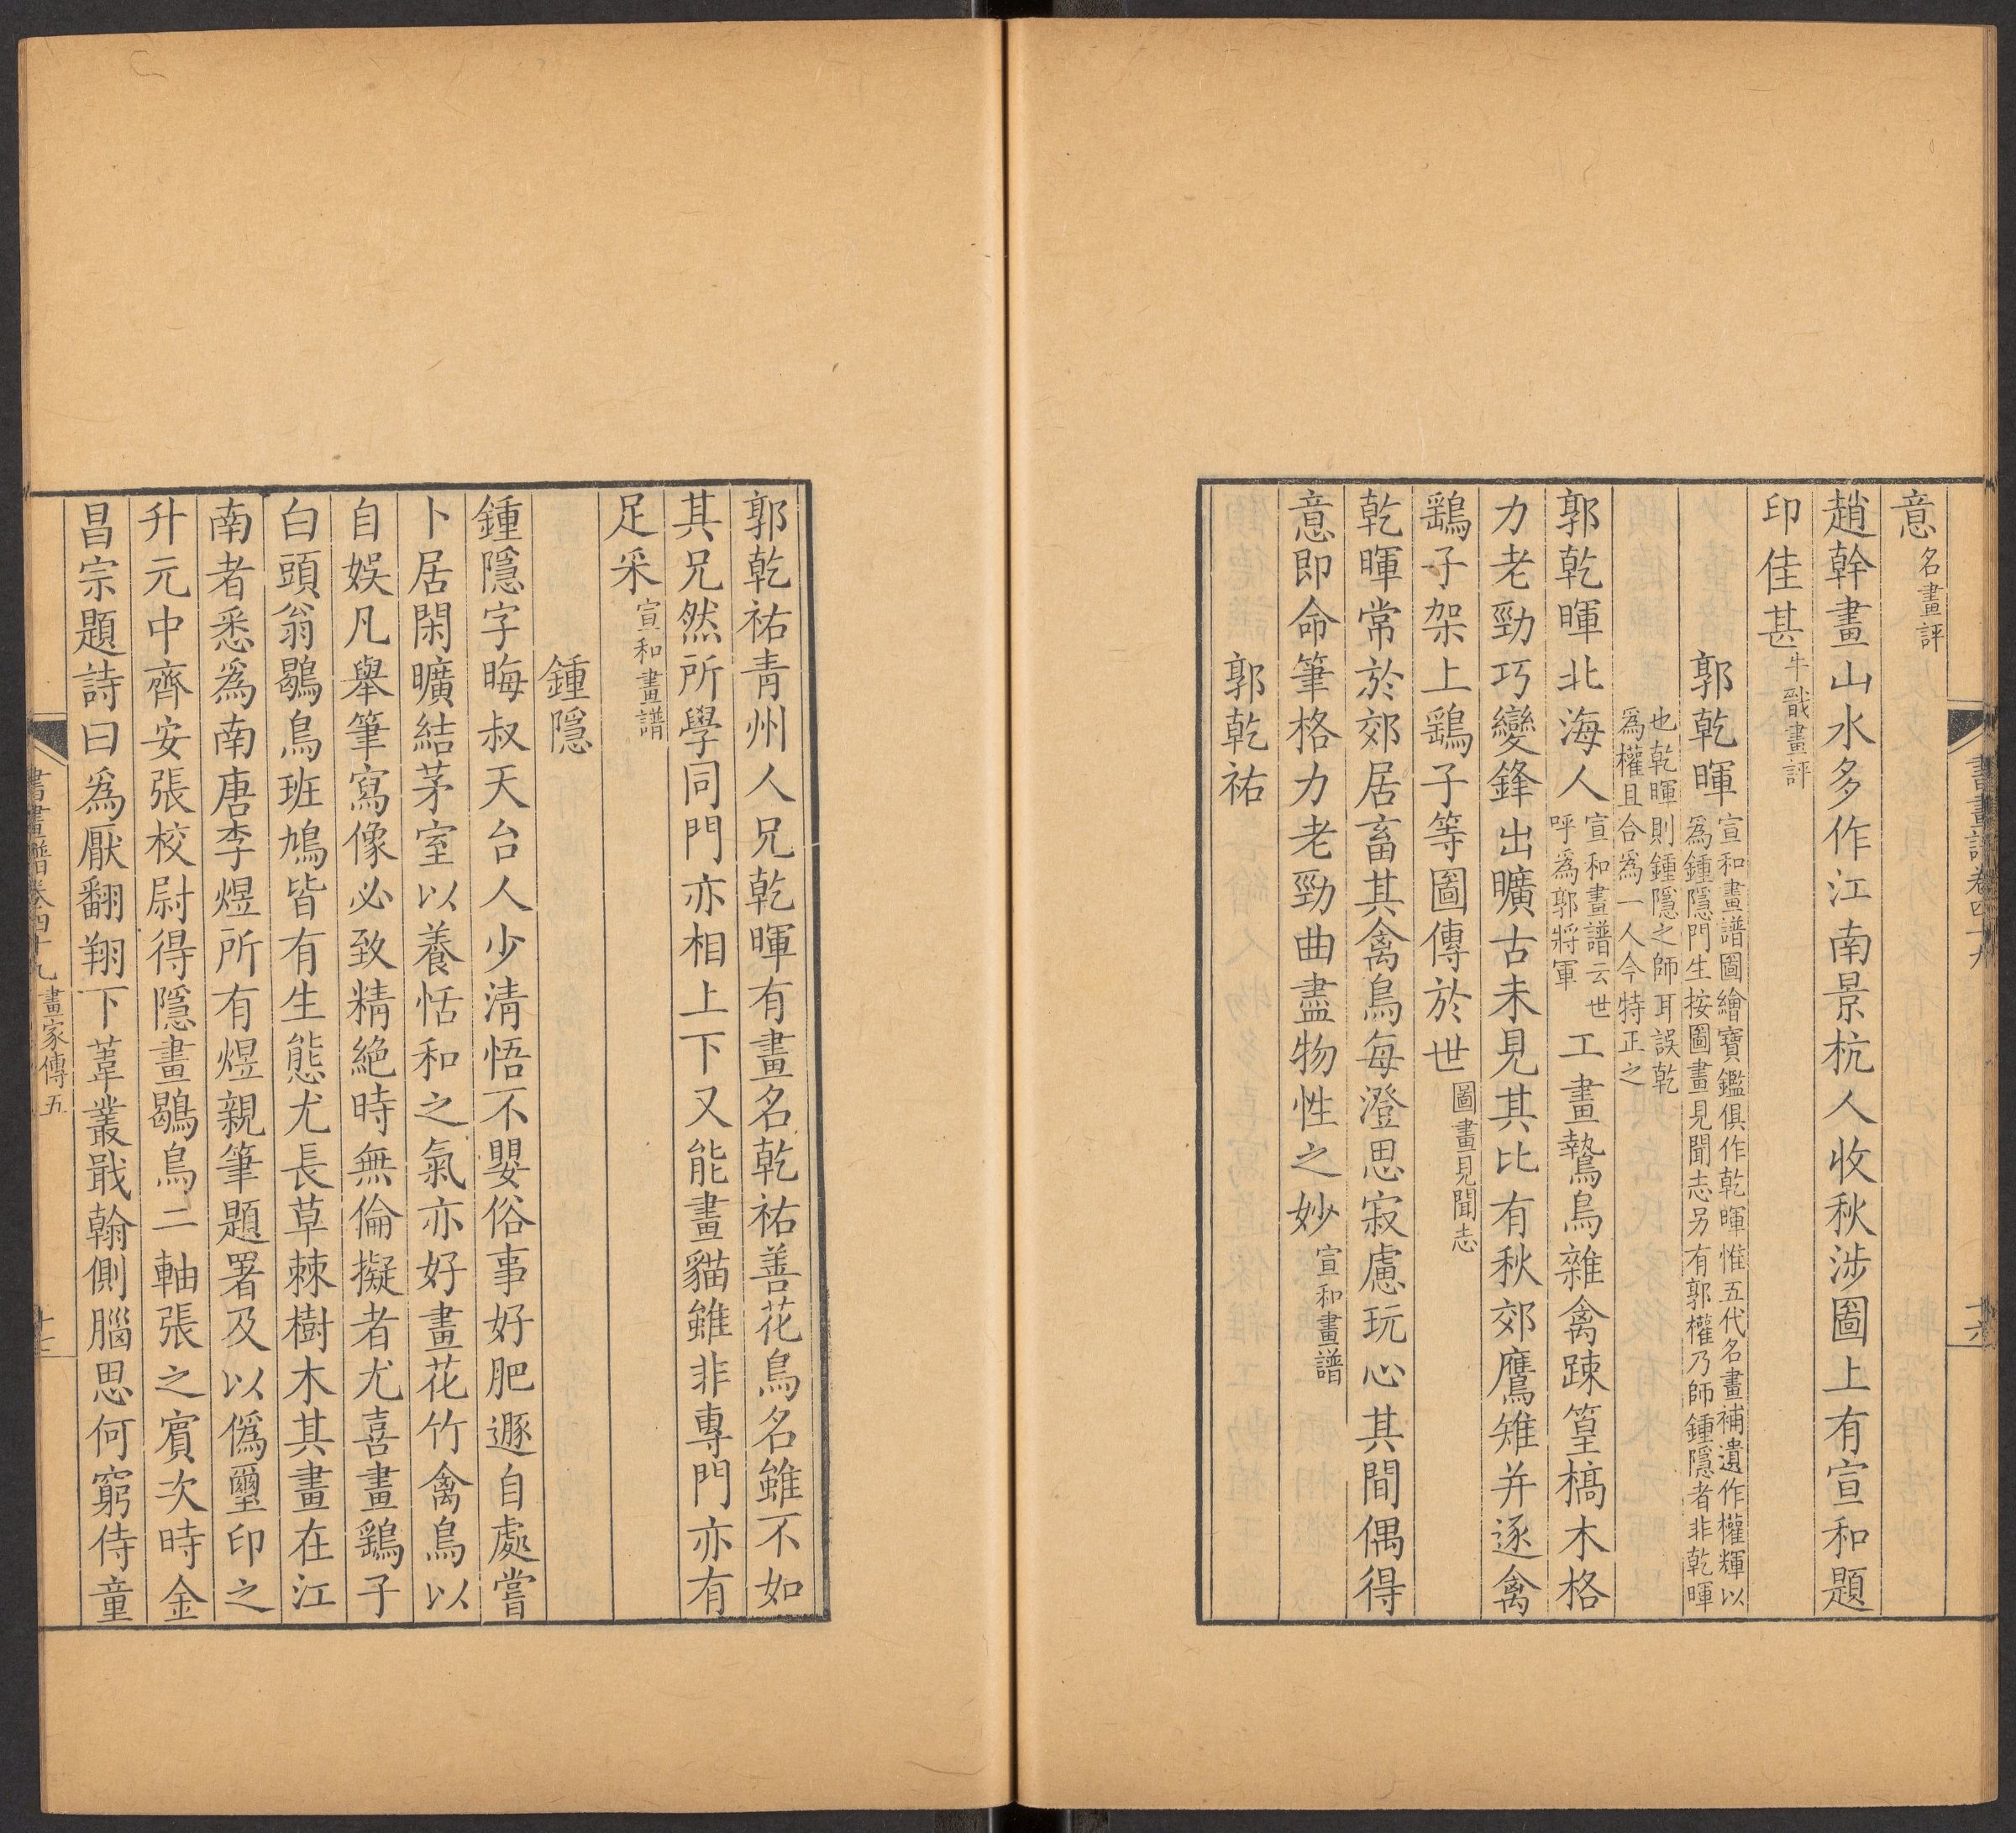 書畫譜卷四十九
十六
意名畫評
趙幹畫山水多作江南景杭人收秋涉圖上有宣和題
印佳甚牛戩畫評
郭乾暉宣和畫譜圖繪寶鑑俱作乾暉惟五代名畫補遺作權輝以
爲鍾隱門生按圖畫見聞志另有郭權乃師鍾隱者非乾暉
也乾暉則鍾隱之師耳誤乾
爲權且合爲一人今特正之
郭乾暉北海人宣和畫譜云世呼爲郭將軍工畫鷙鳥雜禽踈篁槁木格
力老勁巧變鋒出曠古未見其比有秋郊鷹雉并逐禽
鷂子架上鷂子等圖傳於世圖畫見聞志
乾暉常於郊居畜其禽鳥每澄思寂慮玩心其間偶得
意即命筆格力老勁曲盡物性之妙宣和畫譜
郭乾祐
郭乾祐青州人兄乾暉有畫名乾祐善花鳥名雖不如
其兄然所學同門亦相上下又能畫貓雖非專門亦有
足采宣和畫譜
鍾隱
鍾隱字晦叔天台人少清悟不嬰俗事好肥遯自處嘗
卜居閑曠結茅室以養恬和之氣亦好畫花竹禽鳥以
自娛凡舉筆寫像必致精絶時無倫擬者尤喜畫鷂子
白頭翁鶡鳥班鳩皆有生態尤長草棘樹木其畫在江
南者悉爲南唐李煜所有煜親筆題署及以僞璽印之
升元中齊安張校尉得隱畫鶡鳥二軸張之賓次時金
昌宗題詩曰爲厭翻翔下葦叢戢翰側腦思何窮侍童
書畫譜卷四十九 畫家傳五
十七